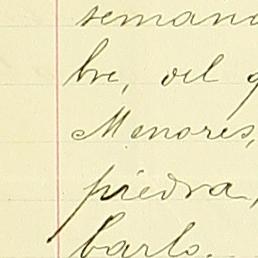 semana
bre, del q
Menores,
piedra,
barlo.